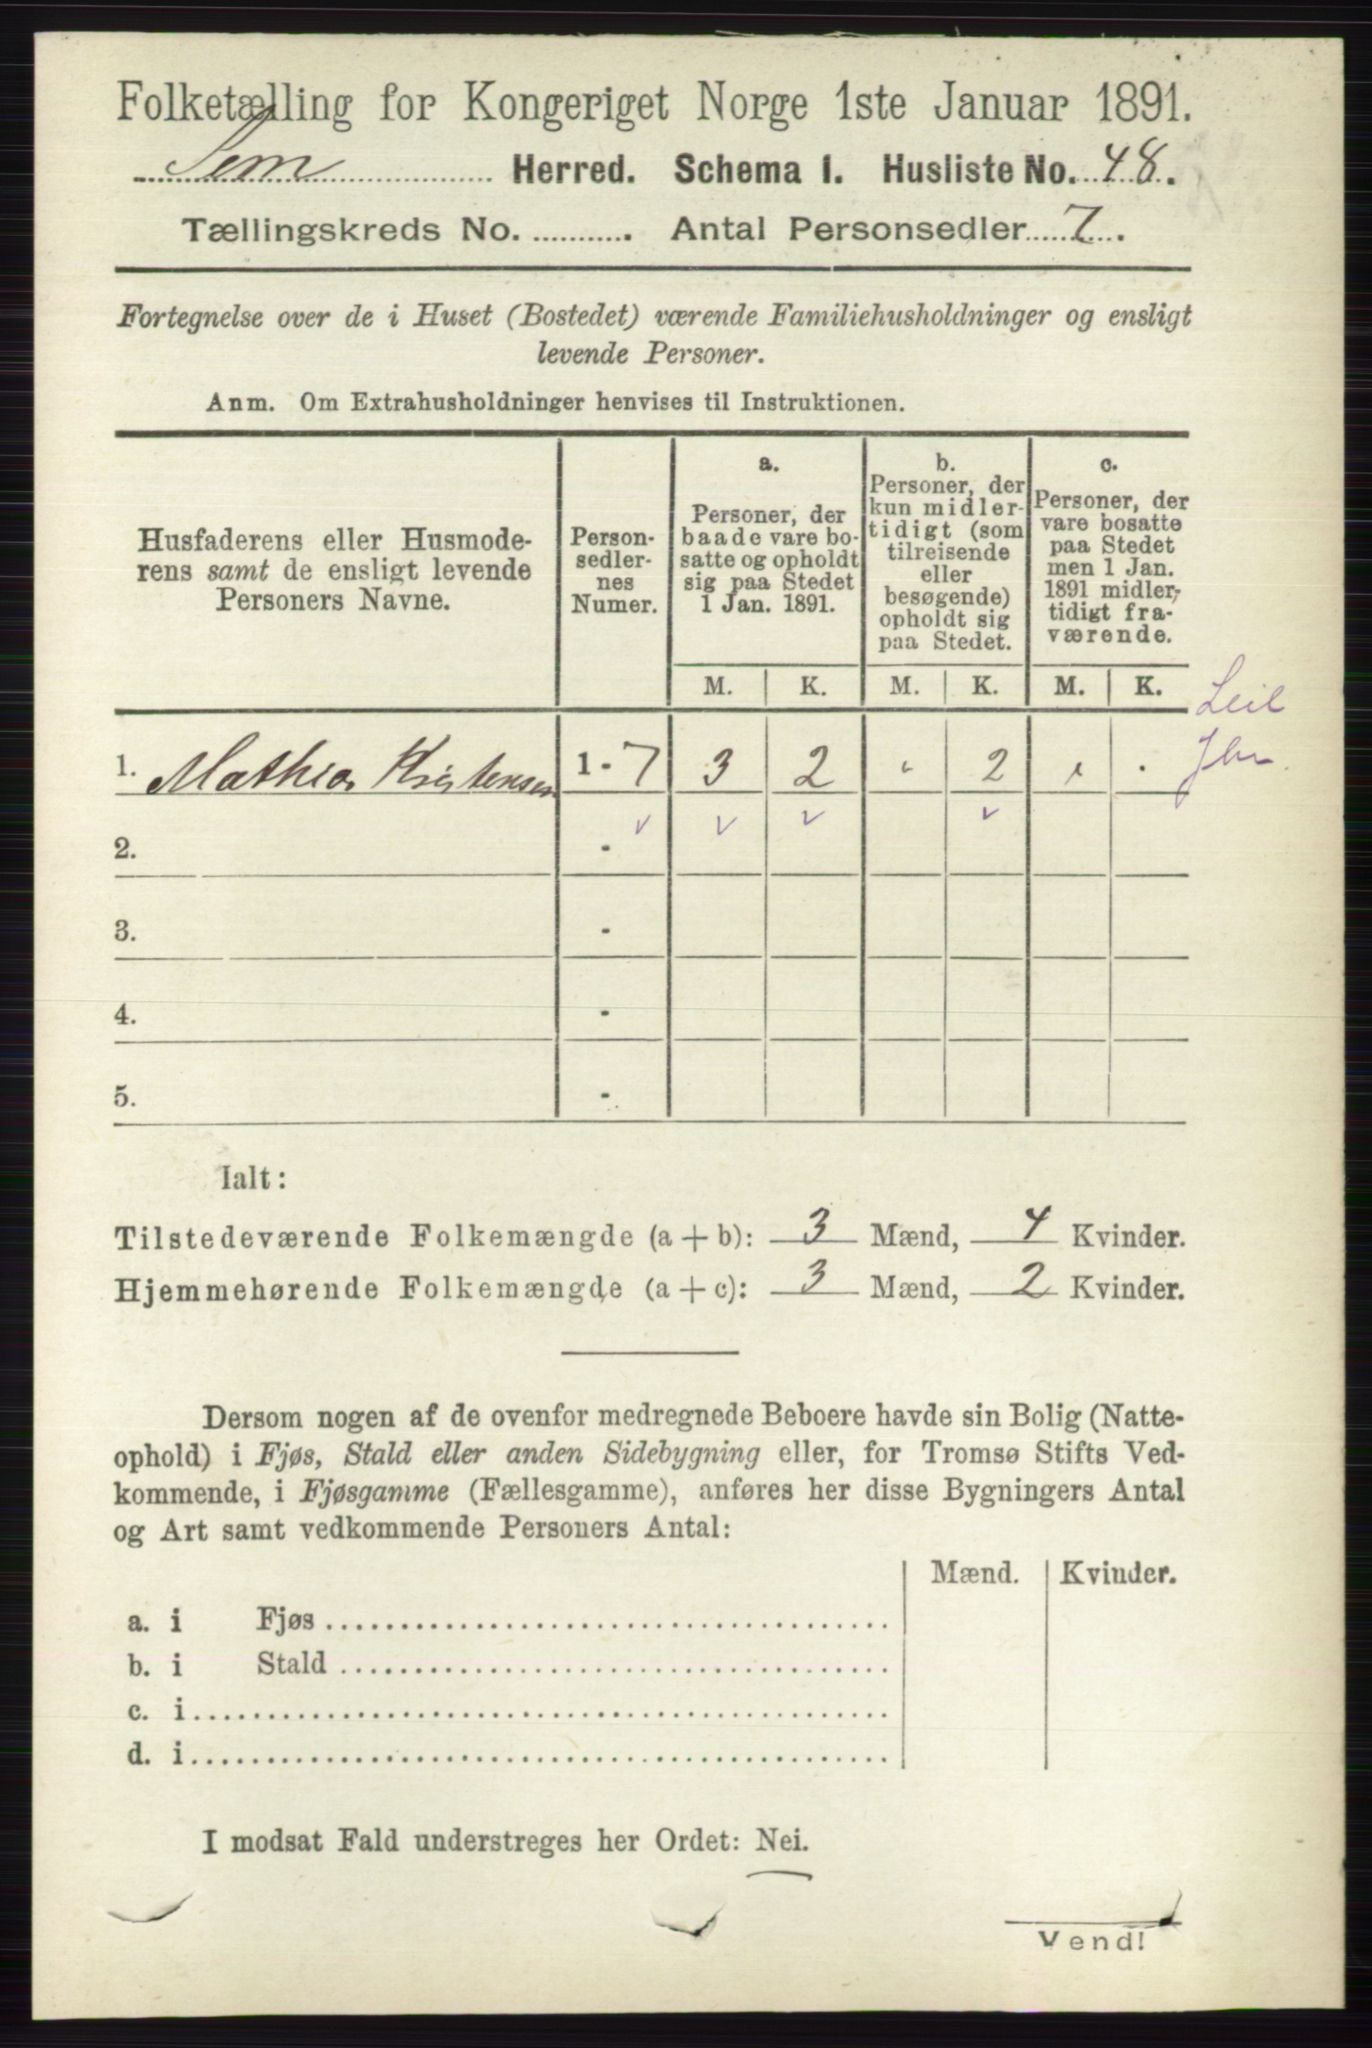 Folketælling for Kongeriget Norge 1ste Januar 1891.
Sem Herred. Schema I. Husliste No. 48.
Tællingskreds No. ........... Antal Personsedler 7.
Fortegnelse over de i Huset (Bostedet) værende Familiehusholdninger og ensligt
levende Personer.
Anm. Om Extrahusholdninger henvises til Instruktionen.
Husfaderens eller Husmode-
rens samt de ensligt levende
Personers Navne.
Person-
sedler-
nes
Numer.
a.
Personer, der
baade vare bo-
satte og opholdt
sig paa Stedet
1 Jan. 1891.
b.
Personer, der
kun midler-
tidigt (som
tilreisende
eller
besøgende)
opholdt sig
paa Stedet.
c.
Personer, der
vare bosatte
paa Stedet
men 1 Jan.
1891 midler-
tidigt fra-
værende.
M. K. M. K. M. K.
Leil
1. Mathias Kristensen 1-7 3 2 2
2. -
3. -
4. -
5. -
Ialt:
Tilstedeværende Folkemængde (a + b): 3 Mænd, 4 Kvinder.
Hjemmehørende Folkemængde (a + c): 3 Mænd, 2 Kvinder.
Dersom nogen af de ovenfor medregnede Beboere havde sin Bolig (Natte-
ophold) i Fjøs, Stald eller anden Sidebygning eller, for Tromsø Stifts Ved-
kommende, i Fjøsgamme (Fællesgamme), anføres her disse Bygningers Antal
og Art samt vedkommende Personers Antal:
Mænd. Kvinder.
a. i Fjøs
b. i Stald
c. i
d. i
I modsat Fald understreges her Ordet: Nei.
Vend!